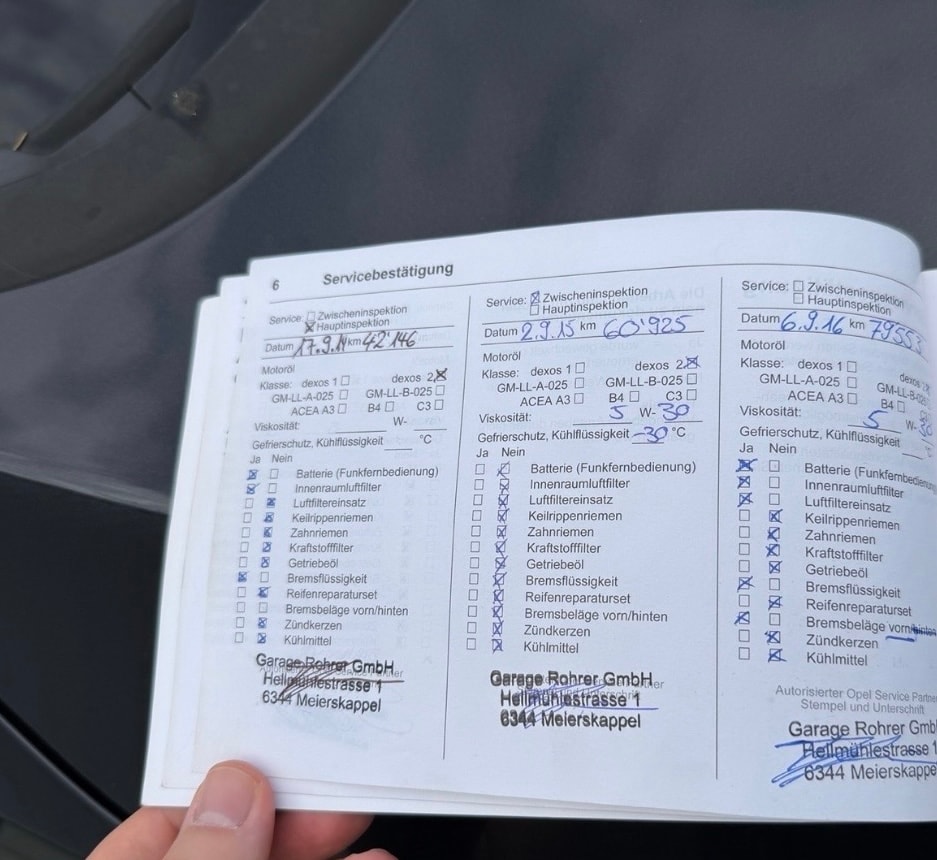 6 Servicebestätigung
Service: Zwischeninspektion
Hauptinspektion
Datum 17.9.14 km 42'146
Motoröl
Klasse: dexos 1 dexos 2
GM-LL-A-025 GM-LL-B-025
ACEA A3 B4 C3
Viskosität: W-
Gefrierschutz, Kühlflüssigkeit °C
Ja Nein
Batterie (Funkfernbedienung)
Innenraumluftfilter
Luftfiltereinsatz
Keilrippenriemen
Zahnriemen
Kraftstofffilter
Getriebeöl
Bremsflüssigkeit
Reifenreparaturset
Bremsbeläge vorn/hinten
Zündkerzen
Kühlmittel
Garage Rohrer GmbH
Hellmühlestrasse 1
6344 Meierskappel
Service: Zwischeninspektion
Hauptinspektion
Datum 2.9.15 km 60'925
Motoröl
Klasse: dexos 1 dexos 2
GM-LL-A-025 GM-LL-B-025
ACEA A3 B4 C3
Viskosität: 5 W-30
Gefrierschutz, Kühlflüssigkeit -30 °C
Ja Nein
Batterie (Funkfernbedienung)
Innenraumluftfilter
Luftfiltereinsatz
Keilrippenriemen
Zahnriemen
Kraftstofffilter
Getriebeöl
Bremsflüssigkeit
Reifenreparaturset
Bremsbeläge vorn/hinten
Zündkerzen
Kühlmittel
Garage Rohrer GmbH
Hellmühlestrasse 1
6344 Meierskappel
Service: Zwischeninspektion
Hauptinspektion
Datum 6.9.16 km 79553
Motoröl
Klasse: dexos 1 dexos
GM-LL-A-025 GM-LL-B-
ACEA A3 B4
Viskosität: 5 W-30
Gefrierschutz, Kühlflüssigkeit °C
Ja Nein
Batterie (Funkfernbedienung
Innenraumluftfilter
Luftfiltereinsatz
Keilrippenriemen
Zahnriemen
Kraftstofffilter
Getriebeöl
Bremsflüssigkeit
Reifenreparaturset
Bremsbeläge vorn/hinten
Zündkerzen
Kühlmittel
Autorisierter Opel Service Partne
Stempel und Unterschrift
Garage Rohrer Gmb
Hellmühlestrasse 1
6344 Meierskappe